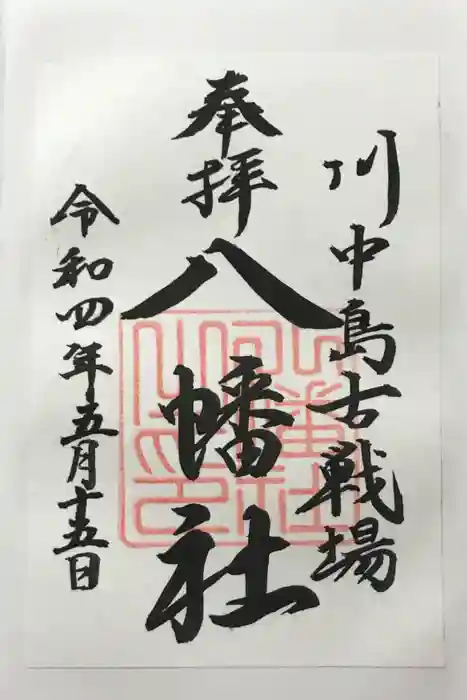 川中島古戦場
奉拝
八幡社
令和四年五月十五日